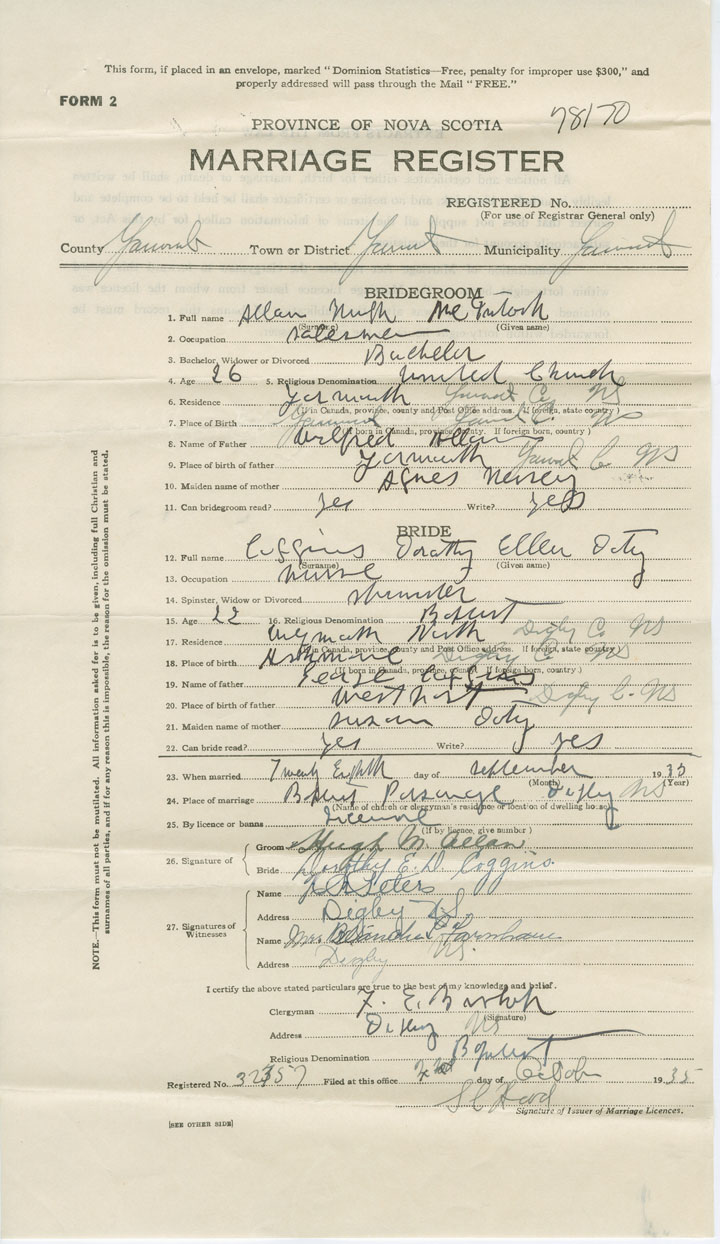 This form, if placed in an envelope, marked "Dominion Statistics—Free, penalty for improper use $300," and
properly addressed will pass through the Mail "FREE."
FORM 2
78170
PROVINCE OF NOVA SCOTIA
MARRIAGE REGISTER
REGISTERED No.
(For use of Registrar General only)
County Yarmouth Town or District Yarmouth Municipality Yarmouth
BRIDEGROOM
1. Full name Allan Hugh McIntosh
(Surname) (Given name)
2. Occupation salesman
3. Bachelor, Widower or Divorced Bachelor
4. Age 26 5. Religious Denomination United Church
6. Residence Yarmouth Yarmouth Co NS
(If in Canada, province, county and Post Office address. If foreign, state country)
7. Place of Birth Yarmouth Yarmouth Co. NS
(If born in Canada, province, county. If foreign born, country)
8. Name of Father Wilfred Allan
9. Place of birth of father Yarmouth Yarmouth Co NS
10. Maiden name of mother Agnes
11. Can bridegroom read? yes Write? yes
BRIDE
12. Full name Coggins Dorothy Ellen Doty
(Surname) (Given name)
13. Occupation nurse
14. Spinster, Widow or Divorced spinster
15. Age 22 16. Religious Denomination Baptist
17. Residence Weymouth North Digby Co NS
(If in Canada, province, county and Post Office address. If foreign, state country)
18. Place of birth Ashmore Digby Co NS
(If born in Canada, province, county. If foreign born, country)
19. Name of father Coggins
20. Place of birth of father Westport Digby Co. NS
21. Maiden name of mother Susan Doty
22. Can bride read? yes Write? yes
23. When married Twenty Eighth day of September 1935
(Month) (Year)
24. Place of marriage Baptist Parsonage Digby NS
(Name of church or clergyman's residence or location of dwelling house)
25. By licence or banns license
(If by licence, give number)
26. Signature of
Groom Hugh M. Allan
Bride Dorothy E. D. Coggins
27. Signatures of Witnesses
Name Peters
Address Digby NS
Name Mrs. Blanche P. Farnham
Address Digby NS.
I certify the above stated particulars are true to the best of my knowledge and belief.
Clergyman F. E.
(Signature)
Address Digby NS
Religious Denomination Baptist
Registered No. 32357 Filed at this office day of October 1935
Signature of Issuer of Marriage Licences.
[SEE OTHER SIDE]
NOTE.—This form must not be mutilated. All information asked for is to be given, including full Christian and
surnames of all parties, and if for any reason this is impossible, the reason for the omission must be stated.